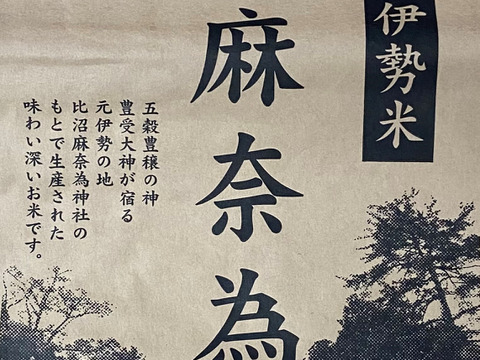 伊勢米
麻奈為
五穀豊穣の神
豊受大神が宿る
元伊勢の地
比沼麻奈為神社の
もとで生産された
味わい深いお米です。